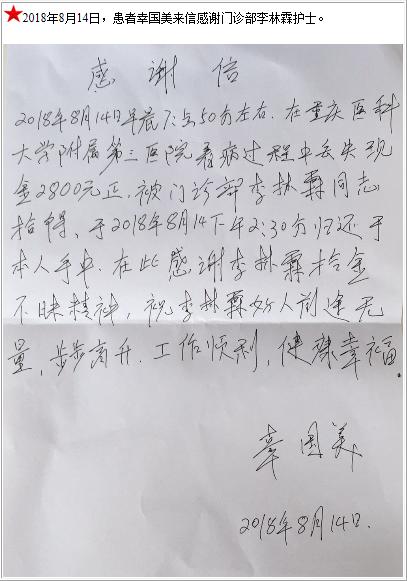 ★2018年8月14日，患者幸国美来信感谢门诊部李林霖护士。
感谢信
2018年8月14日早晨7点50分左右.在重庆医科
大学附属第三医院看病过程中丢失现
金2800元正.被门诊部李林霖同志
拾得、于2018年8月14下午2:30分归还于
本人手中.在此感谢李林霖拾金
不昧精神，祝李林霖好人前途无
量，步步高升.工作顺利，健康幸福.
幸国美
2018年8月14日.